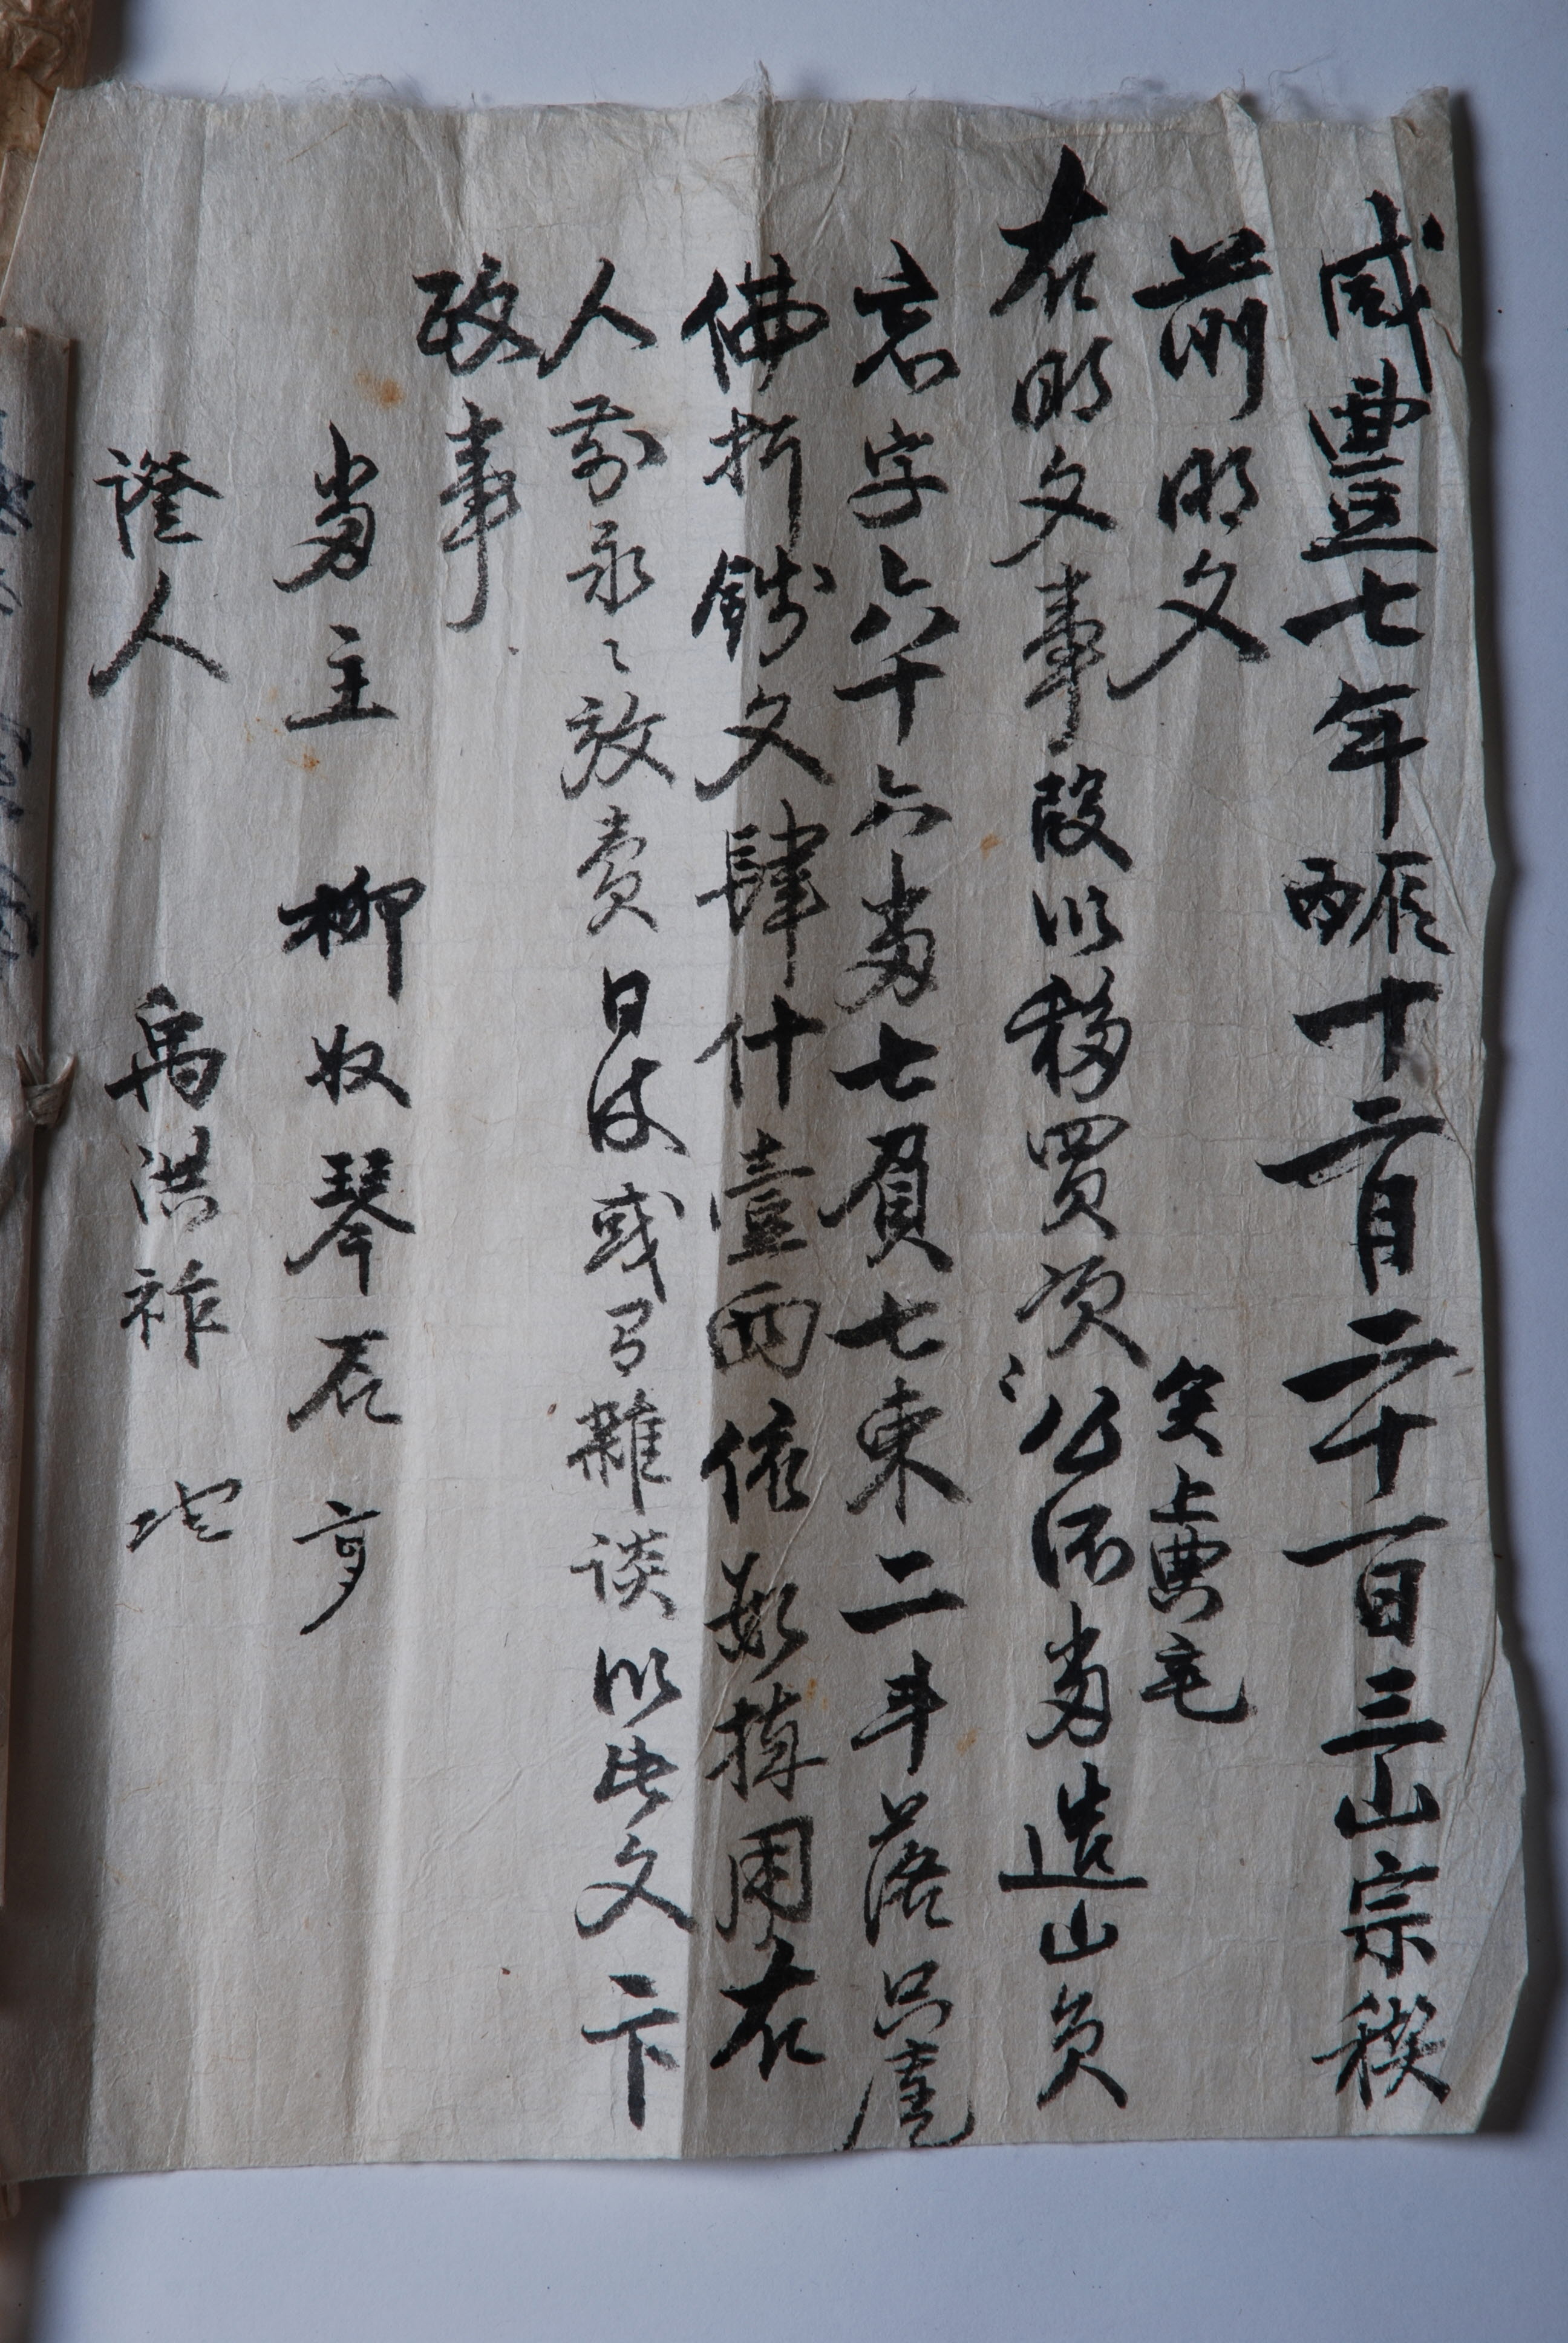 咸豐七年丙辰十二月二十一日三山宗稧
前明文
右明文事段以移買次矣上典毛
公洞畓造山員
忘字六十六畓七負七束二斗落只䖏
佛折錢文肆什壹兩依數捧用右
人前永〻放賣日後或有雜談以此文卞
政事
畓主 柳奴琴石 手
證人 禹洪祚